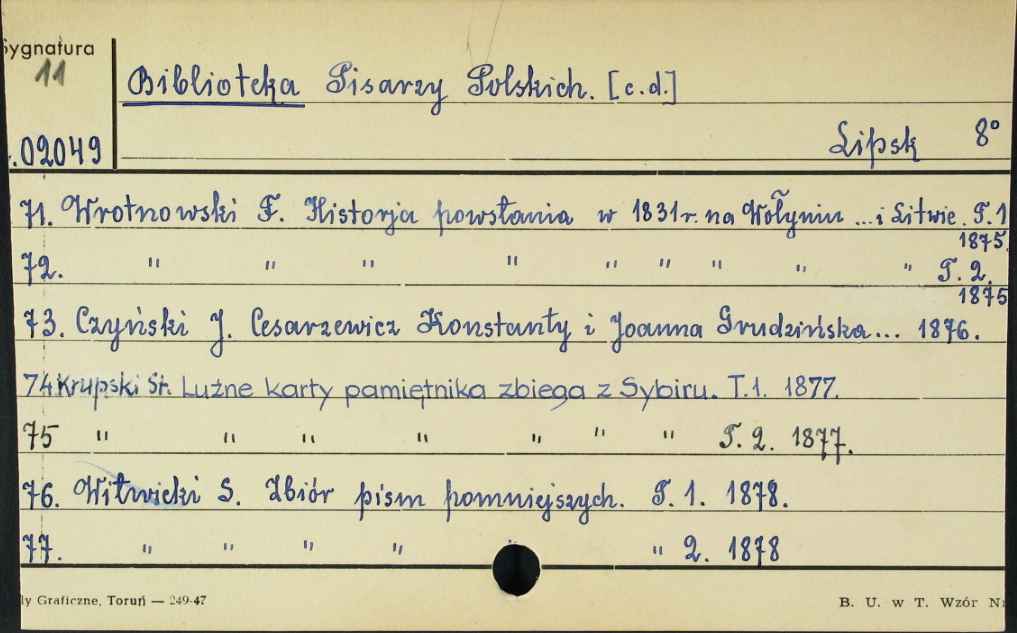 Sygnatura
11
Biblioteka Pisarzy Polskich. [c.d.]
02049
Lipsk 8°
71. Wrotnowski F. Historja powstania w 1831r. na Wołyniu ... i Litwie. T.1
1875.
72. " " " " " " " " " T. 2.
1875
73. Czyński J. Cesarzewicz Konstanty i Joanna Grudzińska... 1876.
74 Krupski St. Luźne karty pamiętnika zbiega z Sybiru. T.1. 1877.
75 " " " " " " " T. 2. 1877.
76. Witwicki S. Zbiór pism pomniejszych. T. 1. 1878.
77. " " " " " " 2. 1878
ły Graficzne, Toruń — 249-47
B. U. w T. Wzór Nr